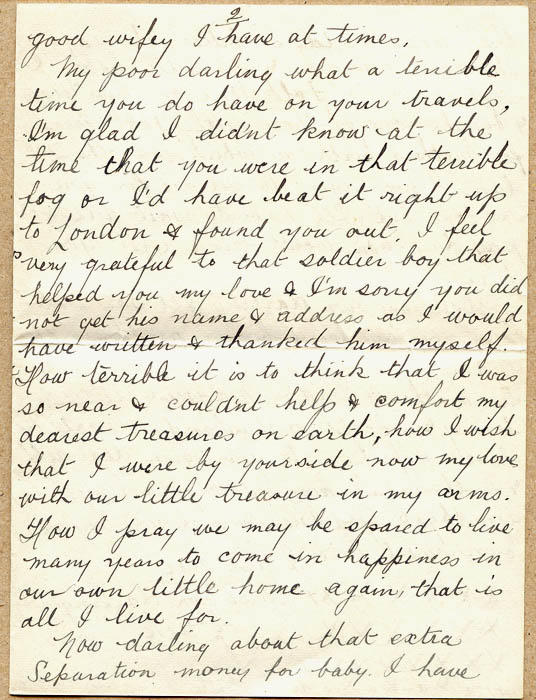 2
good wifey I have at times.
My poor darling what a terrible
time you do have on your travels,
I'm glad I didnt know at the
time that you were in that terrible
fog or I'd have beat it right up
to London & found you out. I feel
very grateful to that soldier boy that
helped you my love & I'm sorry you did
not get his name & address as I would
have written & thanked him myself.
How terrible it is to think that I was
so near & couldnt help & comfort my
dearest treasures on earth, how I wish
that I were by your side now my love
with our little treasure in my arms.
How I pray we may be spared to live
many years to come in happiness in
our own little home again, that is
all I live for.
Now darling about that extra
Separation money for baby. I have